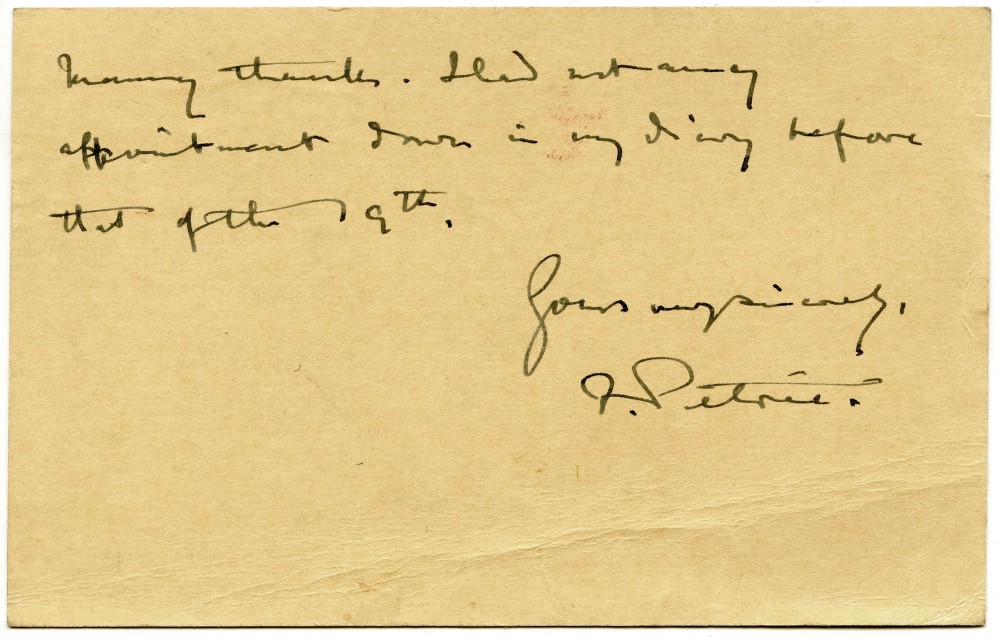 Many thanks. I had not any
appointment down in my diary before
that of the 19th.
Yours very sincerely,
F. Petrie.